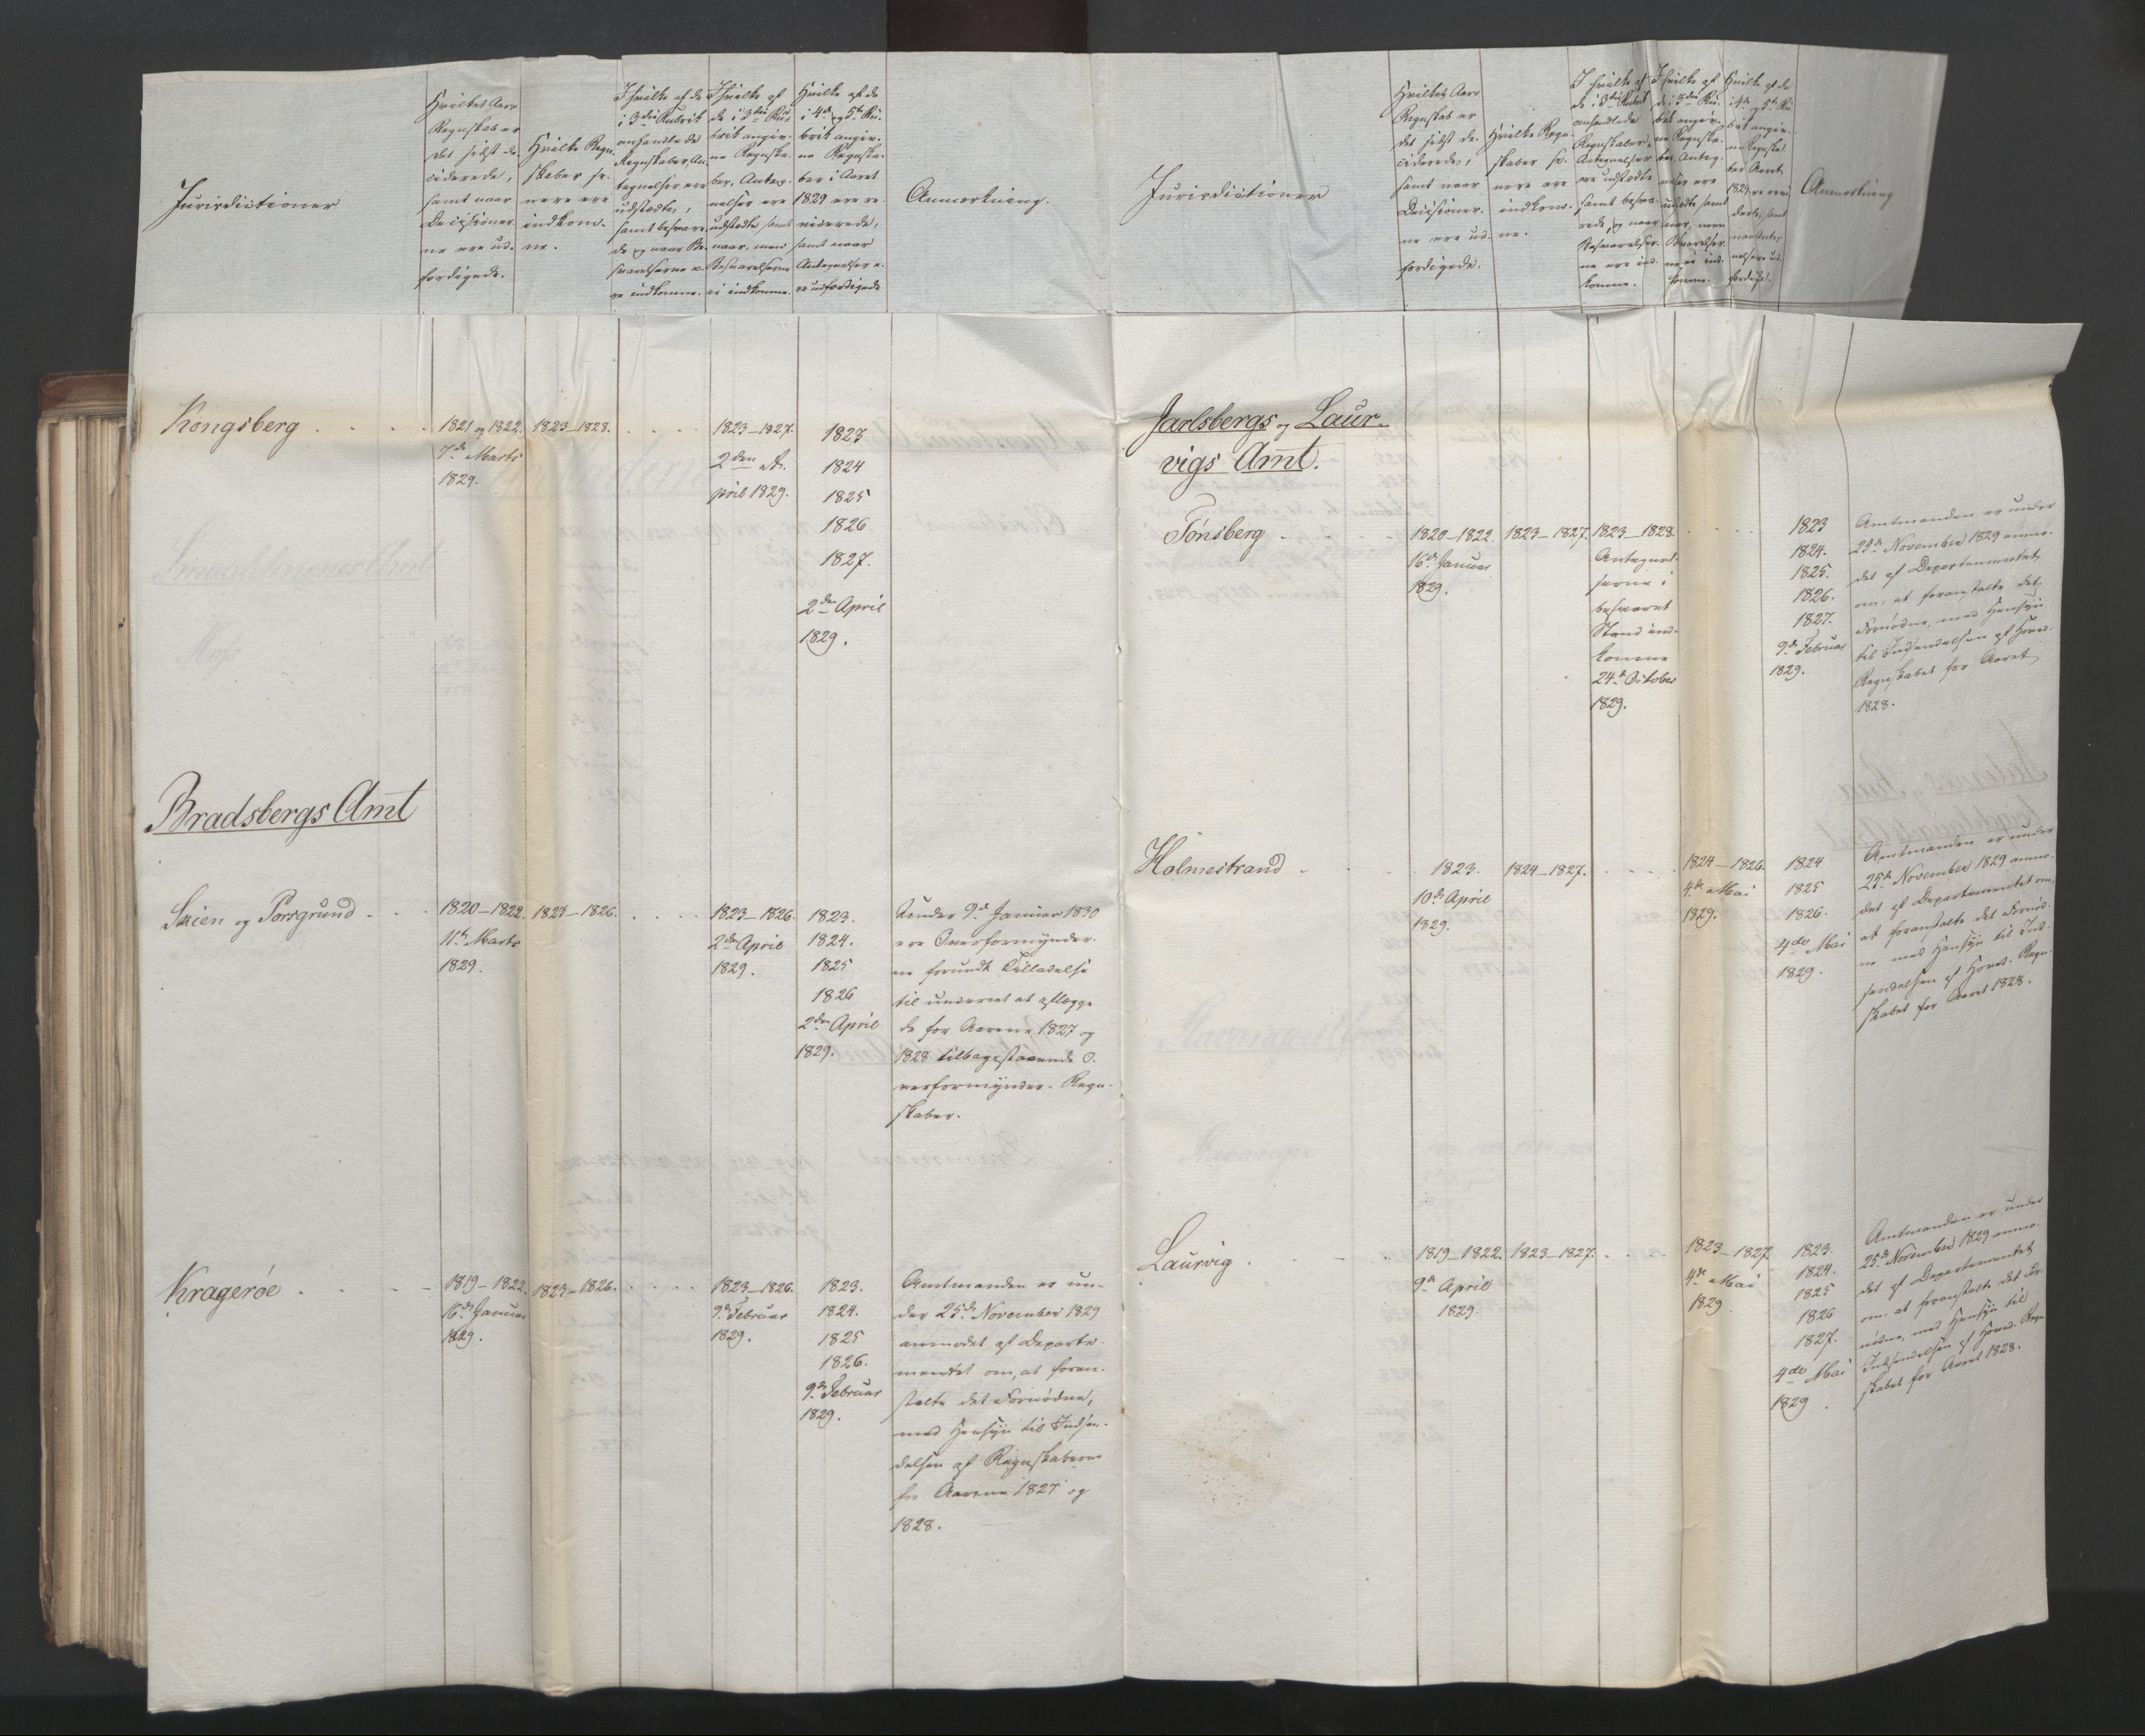 Jurisdictioner
Hvilket Aars
Regnskab er
det sidst de-
ciderede,
samt naar
Decisioner-
ne ere ud-
færdigede.
Hvilke Regn-
skaber se-
nere ere
indkom-
ne.
I hvilke af de
i 3die Rubrik
anhandlede
Regnskaber, An-
tegnelser ere
udstædte,
samt besvare-
de og naar Be-
svarelserne e-
re indkomne.
I hvilke af
de i 3die Ru-
brik angiv-
ne Regnska-
ber, Anteg-
nelser ere
udstædte, samt
naar, men
Besvarelserne
ei indkomne.
Hvilke af de
i 4de og 5te Ru-
brik angiv-
ne Regnska-
ber i Aaret
1829 ere re-
viderede,
samt naar
Antegnelser e-
re udfærdigede
Anmærkning.
Kongsberg . . . . .
1821 og 1822.
7de Marts
1829.
1823–1828.
. . . .
1823–1827.
2den A-
pril 1829.
1823
1824
1825
1826
1827.
2den April
1829.
Bradsbergs Amt
Skien og Porsgrund - . .
1820–1822.
11te Marts
1829.
1823–1826.
. . . .
1823–1826.
2den April
1829.
1823.
1824.
1825
1826
2den April
1829.
Under 9de Januar 1830
ere Overformynder-
ne forundt Tilladelse
til undereet at aflægge
de for Aarene 1827 og
1828 tilbagestaaende O-
verformynder-Regn-
skaber.
Kragerøe . . . . -
1819–1822.
16de Januar
1829.
1823–1826.
. . . .
1823–1826.
9de Februar
1829.
1823.
1824.
1825
1826.
9de Februar
1829.
Amtmanden er un-
der 25de November 1829
anmodet af Departe-
mentet om, at foran-
stalte det Fornødne,
med Hensyn til Indsen-
delsen af Regnskaberne
for Aarene 1827 og
1828.
Jurisdictioner
Hvilket Aars
Regnskab er
det sidst de-
ciderede,
samt naar
Decisioner-
ne ere ud-
færdigede.
Hvilke Regn-
skaber se-
nere ere
indkom-
ne.
I hvilke af
de i 3die Rubrik
anhandlede
Regnskaber,
Antegnelser
ere udstædte
samt besva-
rede, og naar
Besvarelser-
ne ere ind-
komne.
I hvilke af
de i 3die Ru-
brik angiv-
ne Regnska-
ber, Anteg-
nelser ere
udstædte samt
naar, men
Besvarelser-
ne ei ind-
komne.
Hvilke af de
i 4de og 5te Ru-
brik angiv-
ne Regnska-
ber i Aaret
1829 ere revi-
derede, samt
naar Anteg-
nelser ere ud-
færdiget.
Anmærkning
Jarlsbergs og Laur-
vigs Amt.
Tønsberg . . . .
1820–1822.
16de Januar
1829.
1823–1827.
1823–1828.
Antegnel-
serne i
besvaret
Stand ind-
komne
24de October
1829.
. . . .
1823
1824.
1825.
1826.
1827.
9de Februar
1829.
Amtmanden er under
25de November 1829 anmo-
det af Departementet
om, at foranstalte det
Fornødne, med Hensyn
til Indsendelsen af Hoved-
Regnskabet for Aaret
1828.
Holmestrand . . . .
1823.
10de April
1829.
1824–1827.
. . . .
1824–1826.
4de Mai
1829.
1824
1825
1826.
4de Mai
1829.
Amtmanden er under
25de November 1829 anmo-
det af Departementet om,
at foranstalte det Fornød-
ne med Hensyn til Ind-
sendelsen af Hoved-Regn-
skabet for Aaret 1828.
Laurvig . . . .
1819–1822.
9de April
1829.
1823–1827.
. . . .
1823–1827.
4de Mai
1829.
1823.
1824.
1825
1826
1827.
4de Mai
1829.
Amtmanden er under
25de November 1829 anmo-
det af Departementet
om, at foranstalte det For-
nødne, med Hensyn til
Indsendelsen af Hoved-Regn-
skabet for Aaret 1828.